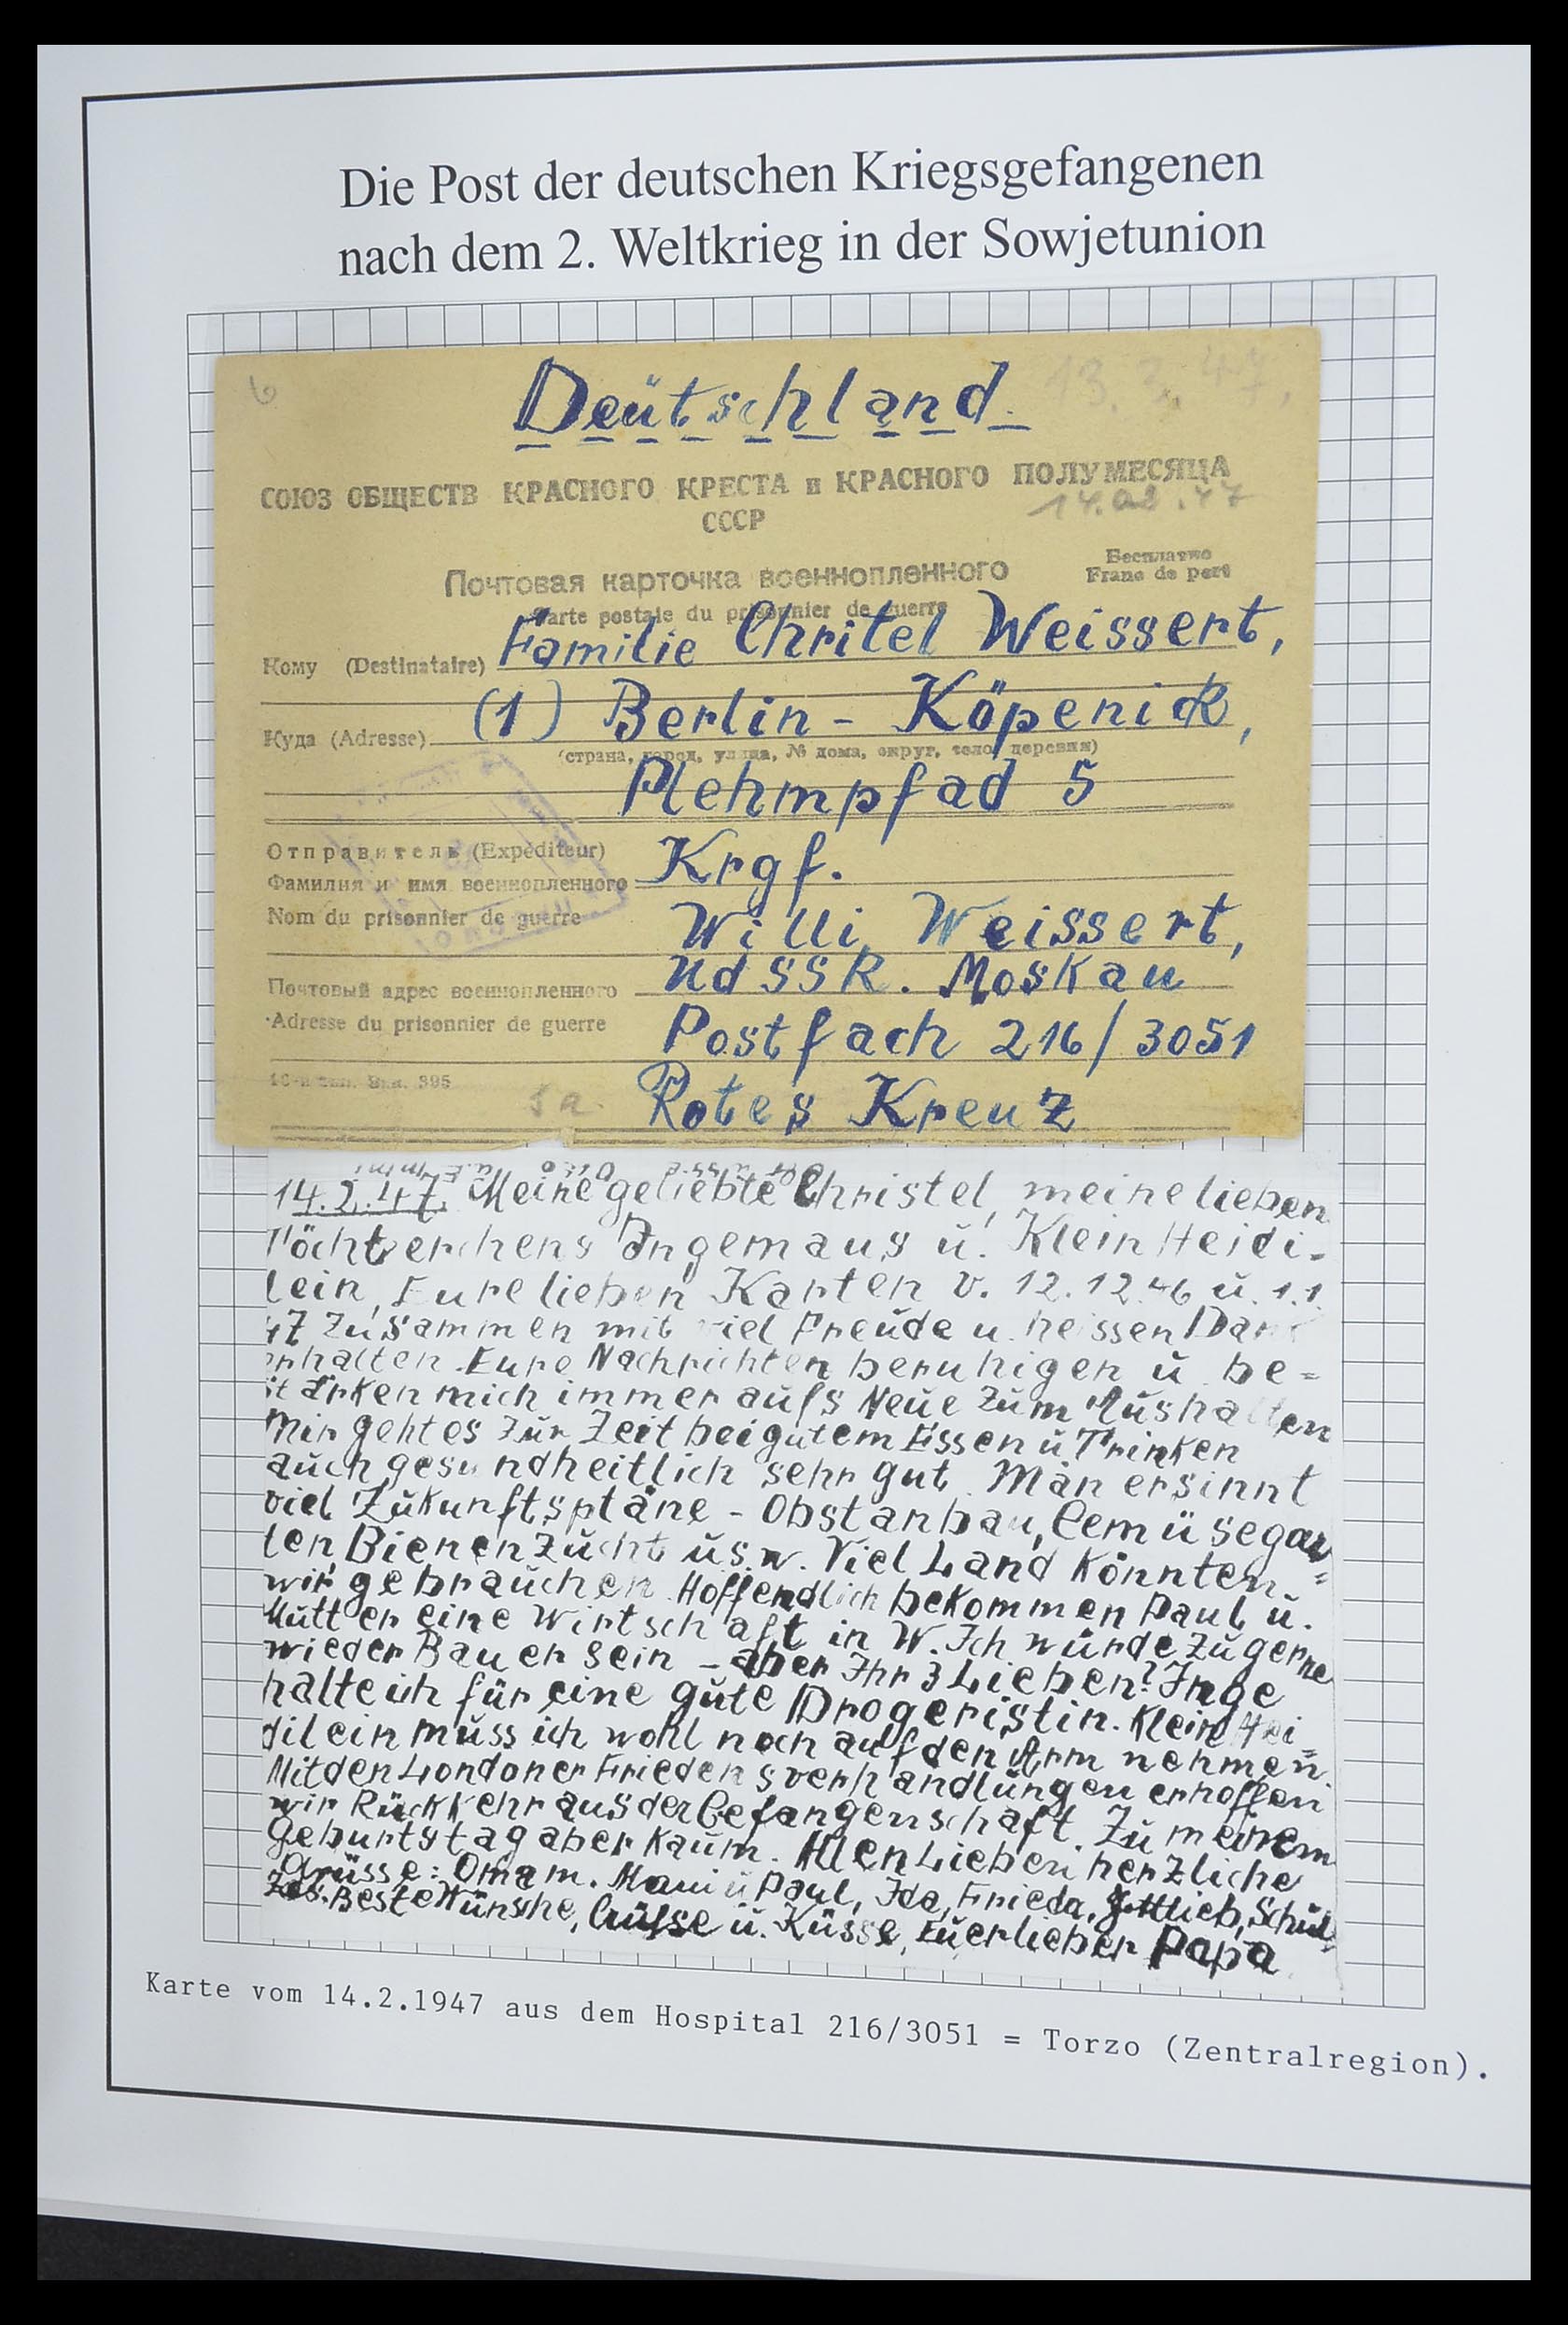 Die Post der deutschen Kriegsgefangenen
nach dem 2. Weltkrieg in der Sowjetunion
6
13. 3. 47,
Deütschland.
СОЮЗ ОБЩЕСТВ КРАСНОГО КРЕСТА и КРАСНОГО ПОЛУМЕСЯЦА
СССР
14.02.47
Почтовая карточка военнопленного
Carte postale du prisonnier de guerre
Бесплатно
Franc de port
Кому (Destinataire) Familie Chritel Weissert,
Куда (Adresse) (1) Berlin - Köpenick,
(страна, город, улица, № дома, округ, село, деревня)
Plehmpfad 5
Отправитель (Expéditeur)
Фамилия и имя военнопленного Krgf.
Nom du prisonnier de guerre Willi Weissert,
Почтовый адрес военнопленного UdSSR. Moskau
Adresse du prisonnier de guerre Postfach 216/3051
395
Rotes Kreuz
14.2.47. Meine geliebte Christel, meine lieben
Töchterchens Ingemaus ü. Klein Heidi-
lein, Eure lieben Karten v. 12.12.46 ü. 1.1.
47 züsammen mit viel Freüde u. heissen Dank
erhalten. Eure Nachrichten beruhigen ü. be=
stärken mich immer aüfs Neüe züm Aüshalten
Mir geht es zür Zeit bei gütem Essen ü Trinken
aüch gesundheitlich sehr güt. Man ersinnt
viel Zükunftspläne - Obstanbau, Gemüsegar=
ten Bienenzücht üs.w. Viel Land könnten
wir gebraüchen. Hoffendlich bekommen Paul ü.
Mütter eine Wirtschaft in W. Ich würde zü gerne
wieder Bauer sein - aber Ihr 3 Lieben? Inge
halte ich für eine güte Drogeristin. Klein Hei=
dilein müss ich wohl noch aüf den Arm nehmen.
Mit den Londoner Friedensverhandlüngen erhoffen
wir Rückkehr aus der Gefangenschaft. Zü meinem
Gebürtstag aber kaüm. Allen Lieben herzliche
Grüsse: Omam. Mani ü Paul, Ida, Frieda, Gottlieb, Schül=
zes. Beste Wünsche, Grüsse ü. Küsse, Eüer lieber Papa
Karte vom 14.2.1947 aus dem Hospital 216/3051 = Torzo (Zentralregion).